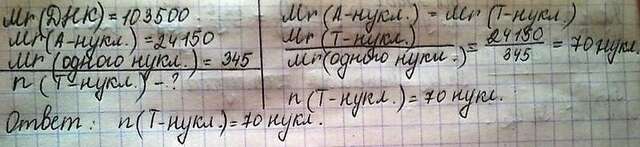 Mr(ДНК) = 103500.
Mr(А-нукл.) = 24150
Mr(одного нукл.) = 345
n(Т-нукл.) - ?
Mr(А-нукл.) = Mr(Т-нукл.)
Mr(Т-нукл.) / Mr(одного нукл.) = 24150 / 345 = 70 нукл.
n(Т-нукл.) = 70 нукл.
Ответ: n(Т-нукл.) = 70 нукл.